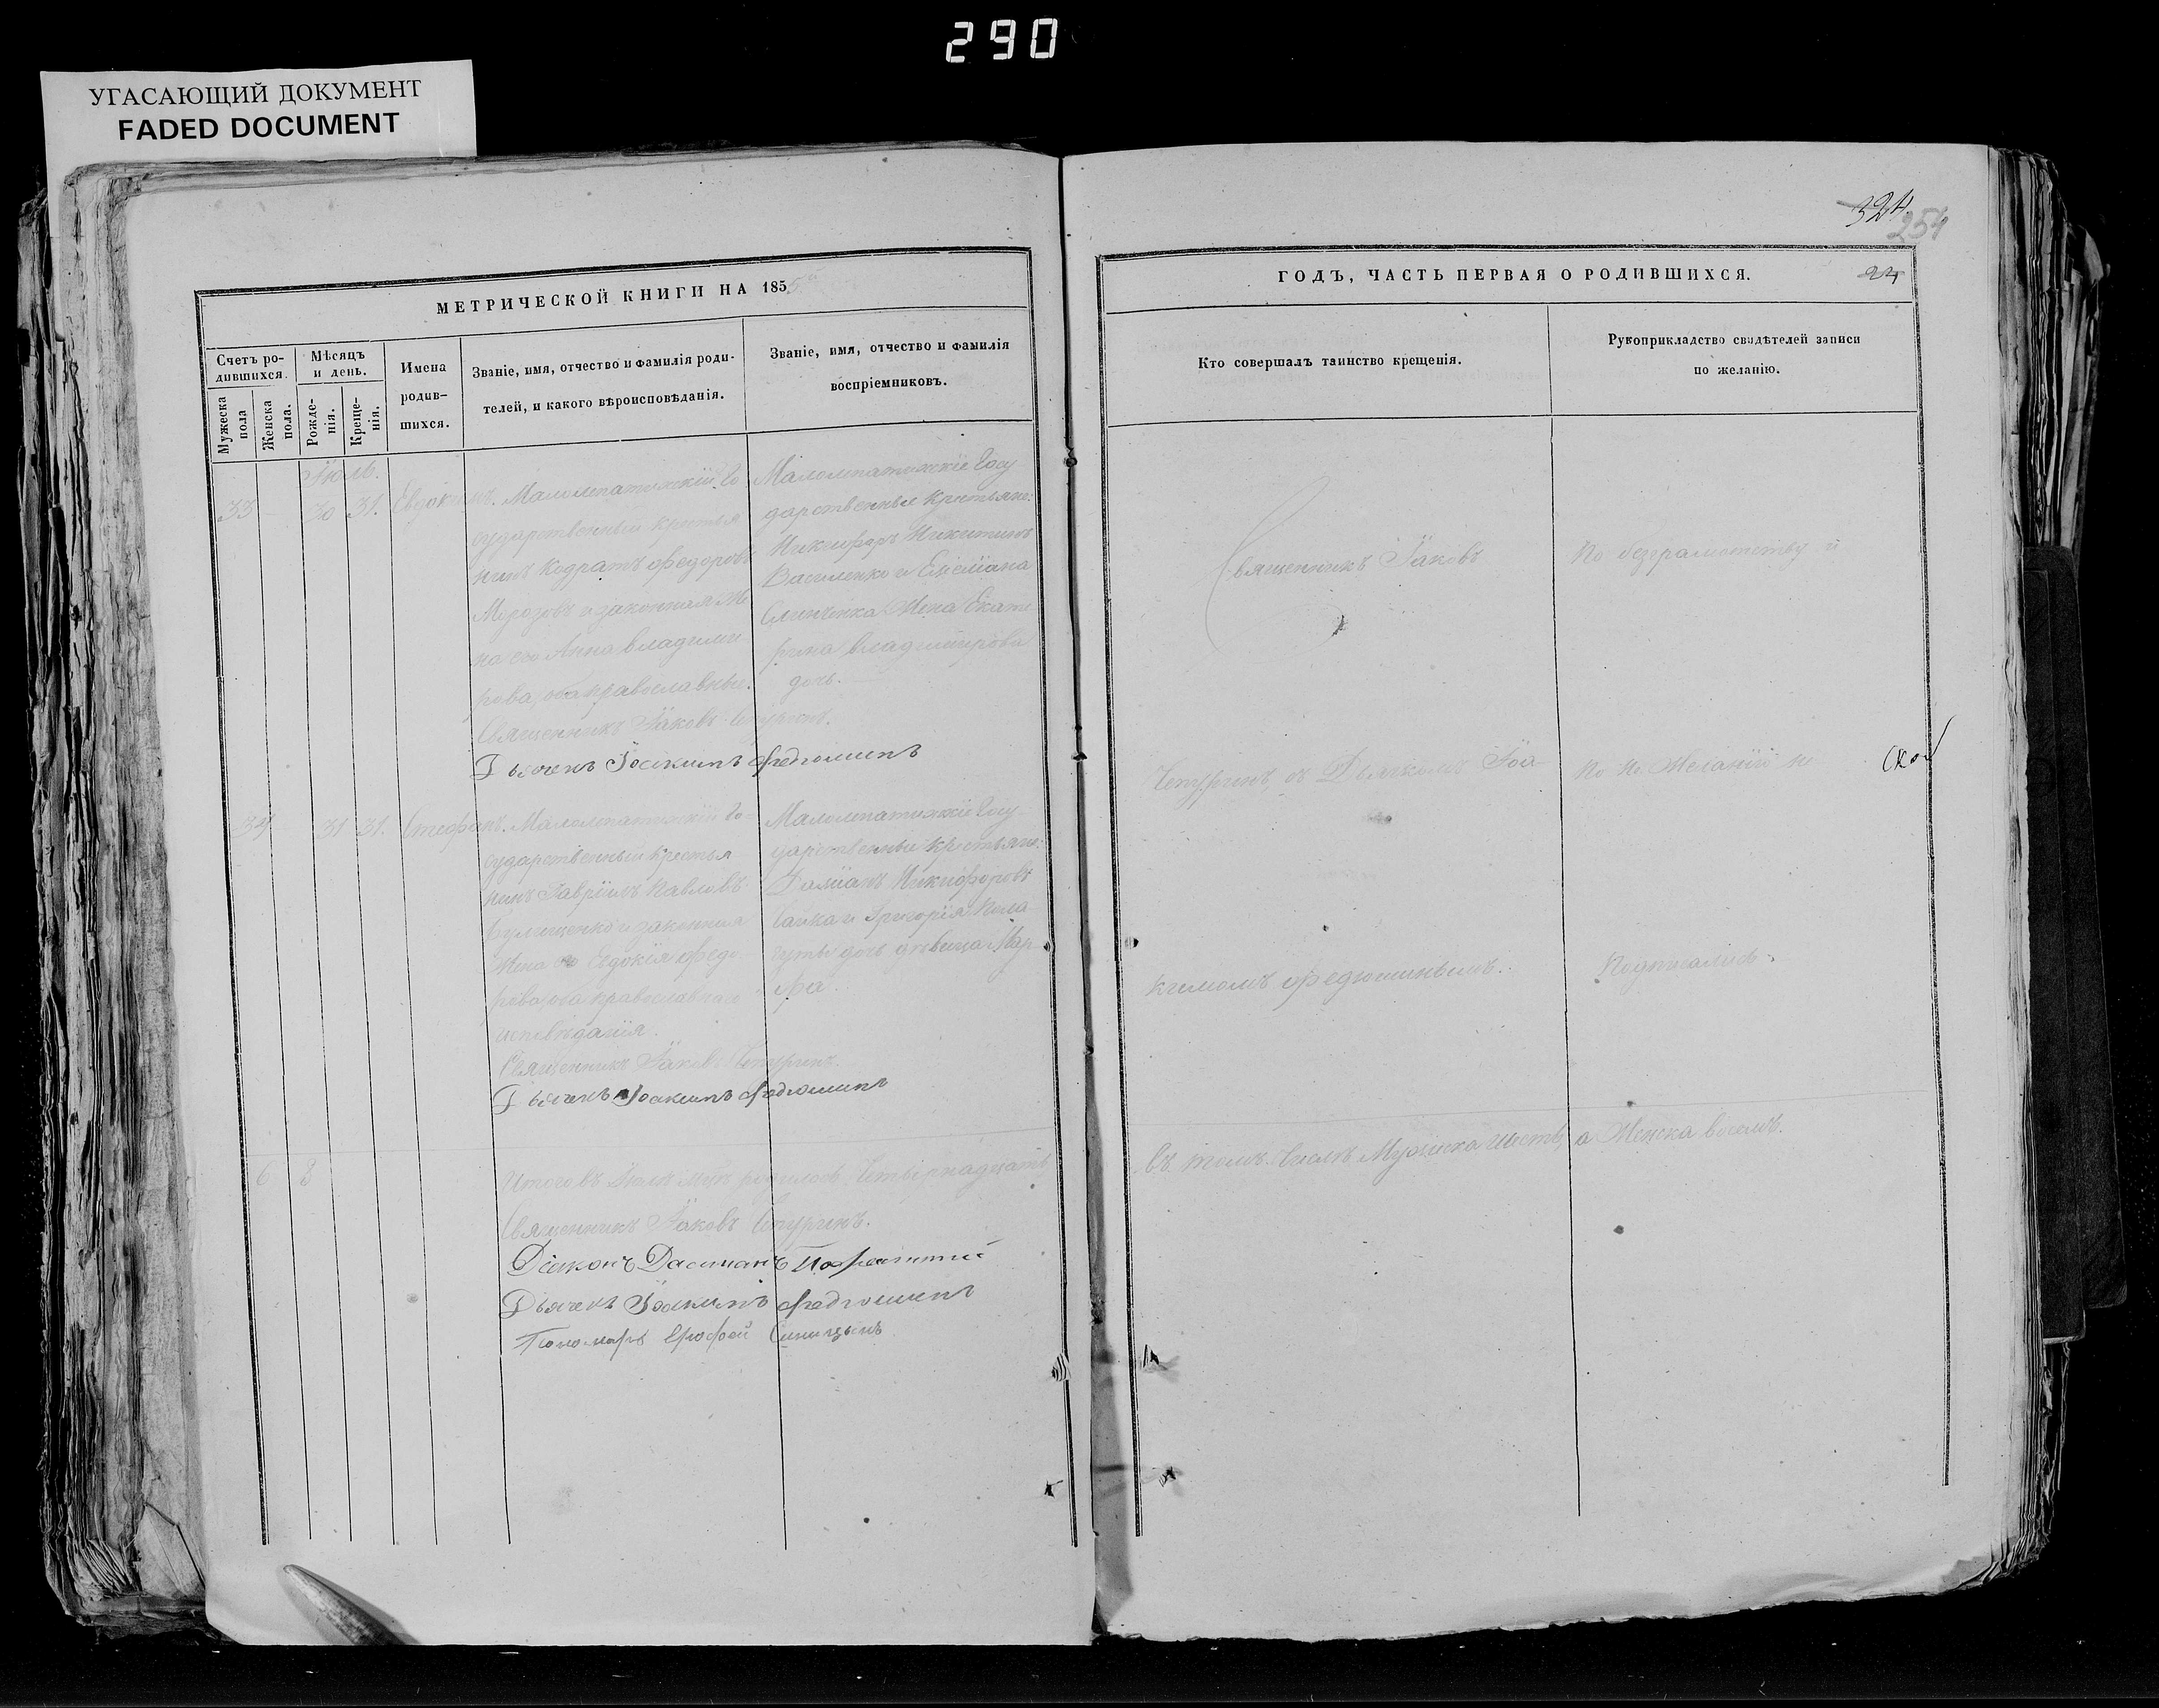 290
УГАСАЮЩИЙ ДОКУМЕНТ
FADED DOCUMENT
324
254
МЕТРИЧЕСКОЙ КНИГИ НА 185
Счетъ ро-
дившихся.
Мужеска пола
Женска пола.
Мѣсяцъ
и день.
Рожде-
нія.
Креще-
нія.
Имена
родив-
шихся.
Званіе, имя, отчество и фамилія роди-
телей, и какого вѣроисповѣданія.
Званіе, имя, отчество и фамилія
воспріемниковъ.
Іюль.
33 30 31. Евдокимъ.
Малолепатихскій Го
сударственный крестья
нинъ Кодратъ Федоровъ
Морозовъ и законная Же
на его Анна Владими
рова, оба православные.
Священникъ Іаковъ
Дьячекъ Іоакимъ Федюшинъ
Малолепатихскіе Госу
дарственные крестьяне:
Никифоръ Никитинъ
Василенко и
Жена Екате
рина Владимірова
дочь.
34 31 31. Стефанъ.
Малолепатихскій Го=
сударственный крестья
нинъ Гавріилъ Павловъ
и законная
Жена его Евдокія Федо
рова, оба православнаго
исповѣданія.
Священникъ Іаковъ
Дьячекъ Іоакимъ Федюшинъ
Малолепатихскіе Госу
дарственные крестьяне:
Даміанъ Никифоровъ
и Григорія
дочь дѣвица Мар
фа.
6 8
Итого въ Іюлѣ родилось Четырнадцать
Священникъ Іаковъ
Діаконъ
Дьячекъ Іоакимъ Федюшинъ
Пономарь Ерофей Синицынъ
ГОДЪ, ЧАСТЬ ПЕРВАЯ О РОДИВШИХСЯ.
24
Кто совершалъ таинство крещенія.
Рукоприкладство свидѣтелей записи
по желанію.
Священникъ Іаковъ
съ Дьячкомъ Іоа-
кимомъ Федюшинымъ.
По безграмотству и
по не Желанію не
подписались.
въ томъ числѣ Мужеска шесть, а Женска восемь.